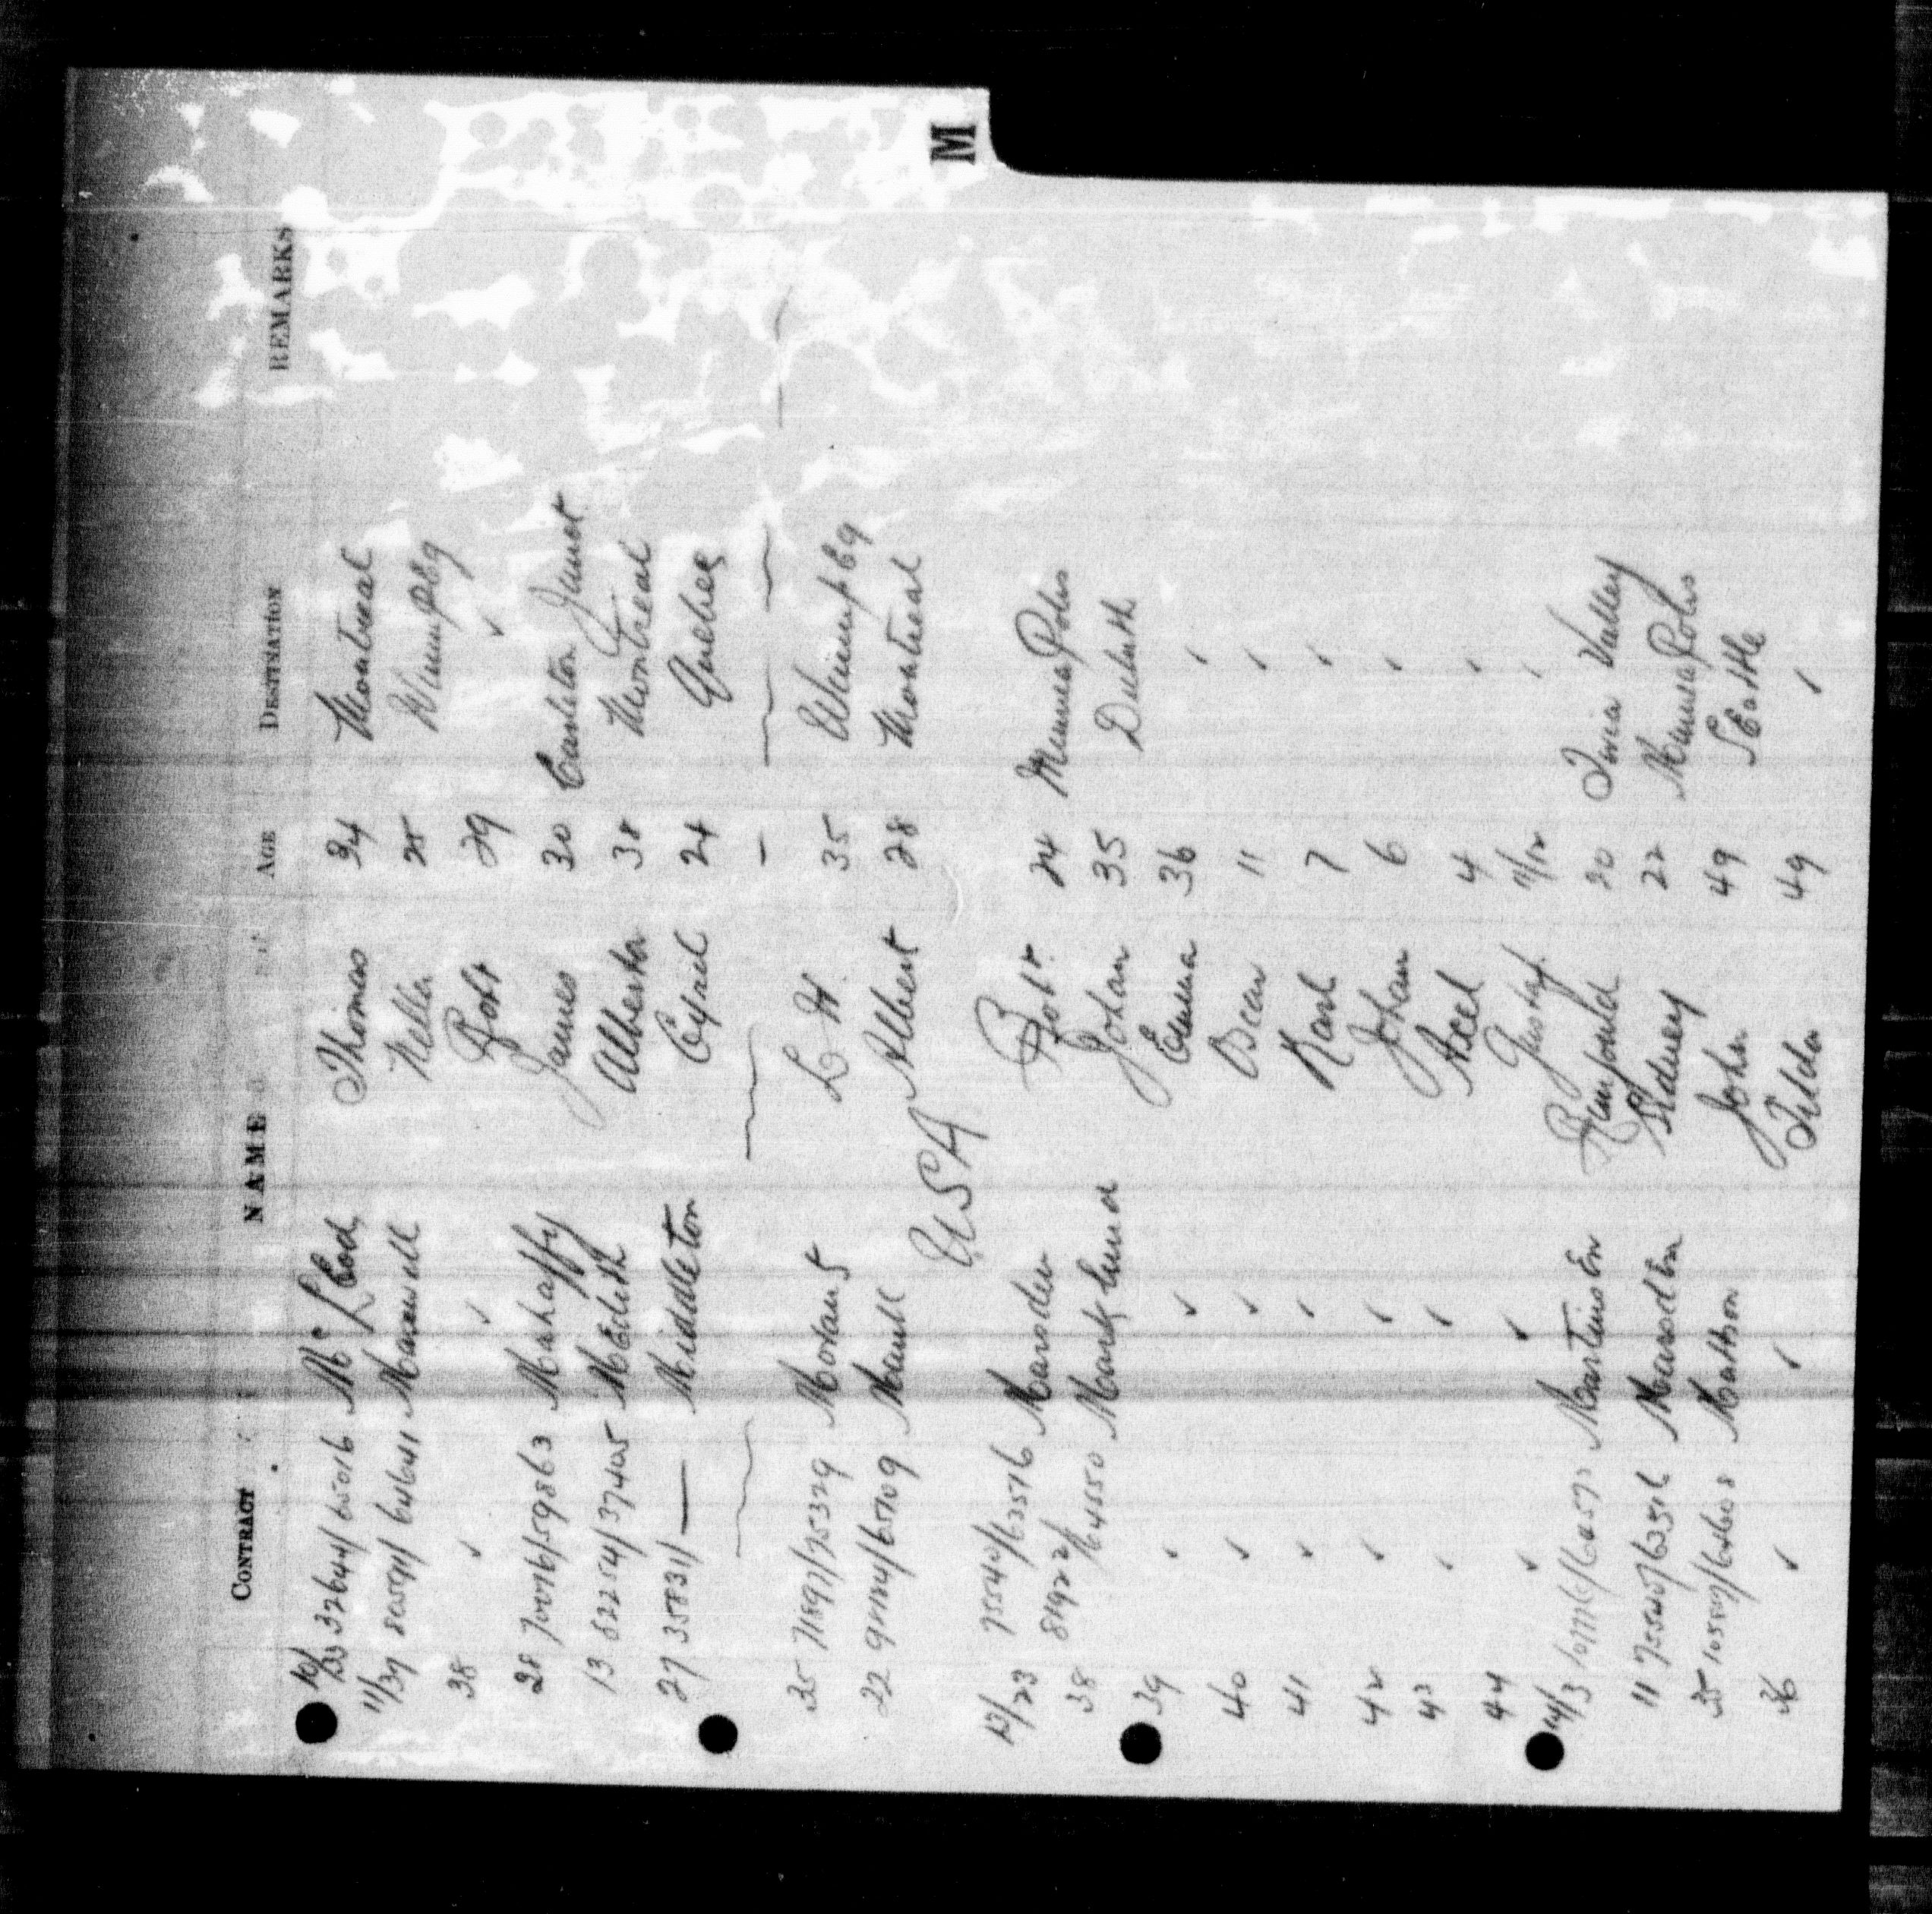 M
CONTRACT NAME AGE DESTINATION REMARKS
10/33 32644/65016 Mc Leod Thomas 34 Montreal
11/37 Maxwell Nellie 28 Winnipeg
38 ✓ ✓ Robt 29 ✓
28 70076/59863 Mahaffy James 30 Carleton Junct
13 62254/37405 Meredith Alberta 38 Montreal
27 35831/— Middleton Cyril 24 Quebec
35 71897/75329 L H 35 Winnipeg
22 Maull Albert 28 Montreal
USA
12/23 75540/63576 Marsden Robt. 24 Minneapolis
38 81922/64550 Johan 35 Duluth
39 ✓ ✓ Emma 36 ✓
40 ✓ ✓ Oscar 11 ✓
41 ✓ ✓ Karl 7 ✓
42 ✓ ✓ Johan 6 ✓
43 ✓ ✓ Axel 4 ✓
44 ✓ ✓ Gustaf 11/12 ✓
14/3 Martinsen 20 Valley
11 75540/63576 Marsden Sidney 22 Minneapolis
35 Mattson John 49 Seattle
36 ✓ ✓ Tilda 49 ✓